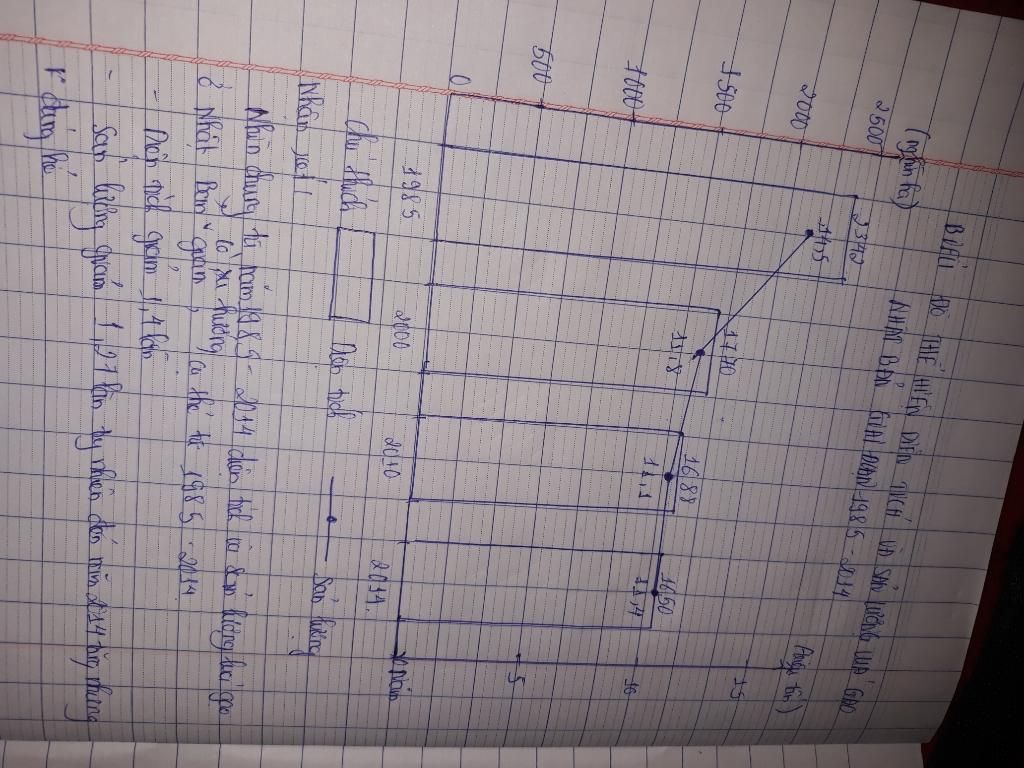 BIỂU ĐỒ THỂ HIỆN DIỆN TÍCH VÀ SẢN LƯỢNG LÚA GẠO
NHẬT BẢN GIAI ĐOẠN 1985 - 2014
(nghìn ha)
(triệu tấn)
2500
2000
1500
1000
500
0
15
10
5
14,5
11,8
1688
11,1
1650
1985
2000
2010
2014
Năm
Chú thích
Diện tích
Sản lượng
Nhận xét:
Nhìn chung từ năm 1985 - 2014 diện tích và sản lượng lúa gạo
ở Nhật Bản có xu hướng giảm, cụ thể từ 1985 - 2014
- Diện tích giảm 1,4 lần
- Sản lượng giảm 1,27 lần tuy nhiên đến năm 2014 tăng nhưng
k đáng kể